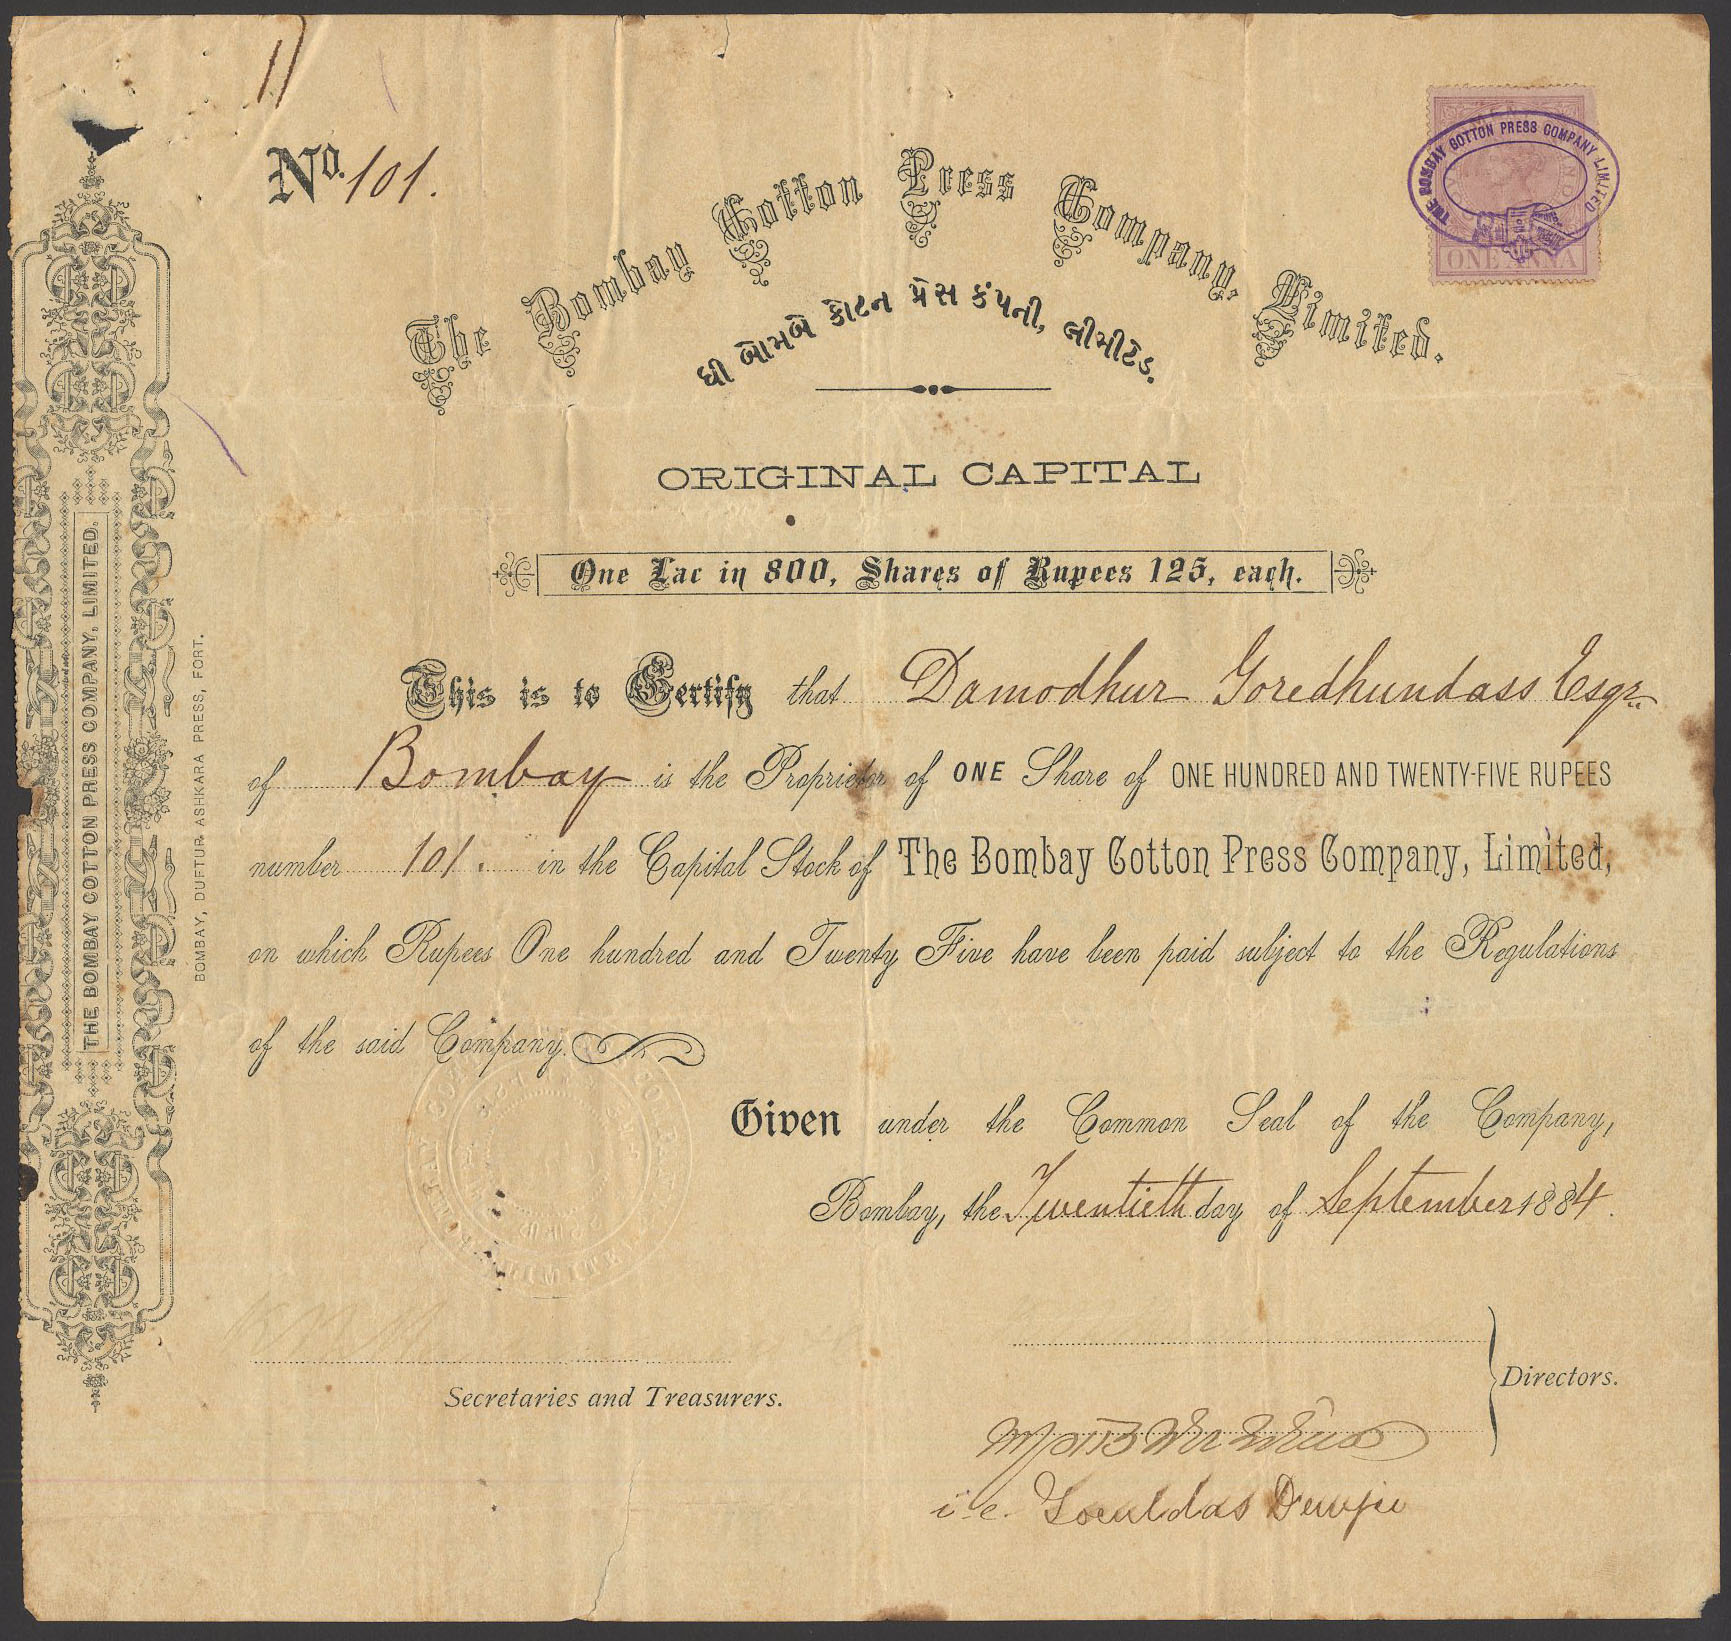 No. 101.
THE BOMBAY COTTON PRESS COMPANY LIMITED
ONE ANNA
The Bombay Cotton Press Company, Limited.
ધી બોમબે કોટન પ્રેસ કંપની, લીમીટેડ.
ORIGINAL CAPITAL
One Lac in 800, Shares of Rupees 125, each.
This is to Certify that Damodhur Goredhundass Esqr.
of Bombay is the Proprietor of ONE Share of ONE HUNDRED AND TWENTY-FIVE RUPEES
number 101. in the Capital Stock of The Bombay Cotton Press Company, Limited,
on which Rupees One hundred and Twenty Five have been paid subject to the Regulations
of the said Company.
Given under the Common Seal of the Company,
Bombay, the Twentieth day of September 1884.
Secretaries and Treasurers.
Directors.
i.e. Goculdas Dewjee
THE BOMBAY COTTON PRESS COMPANY, LIMITED.
BOMBAY, DUFTUR ASHKARA PRESS, FORT.